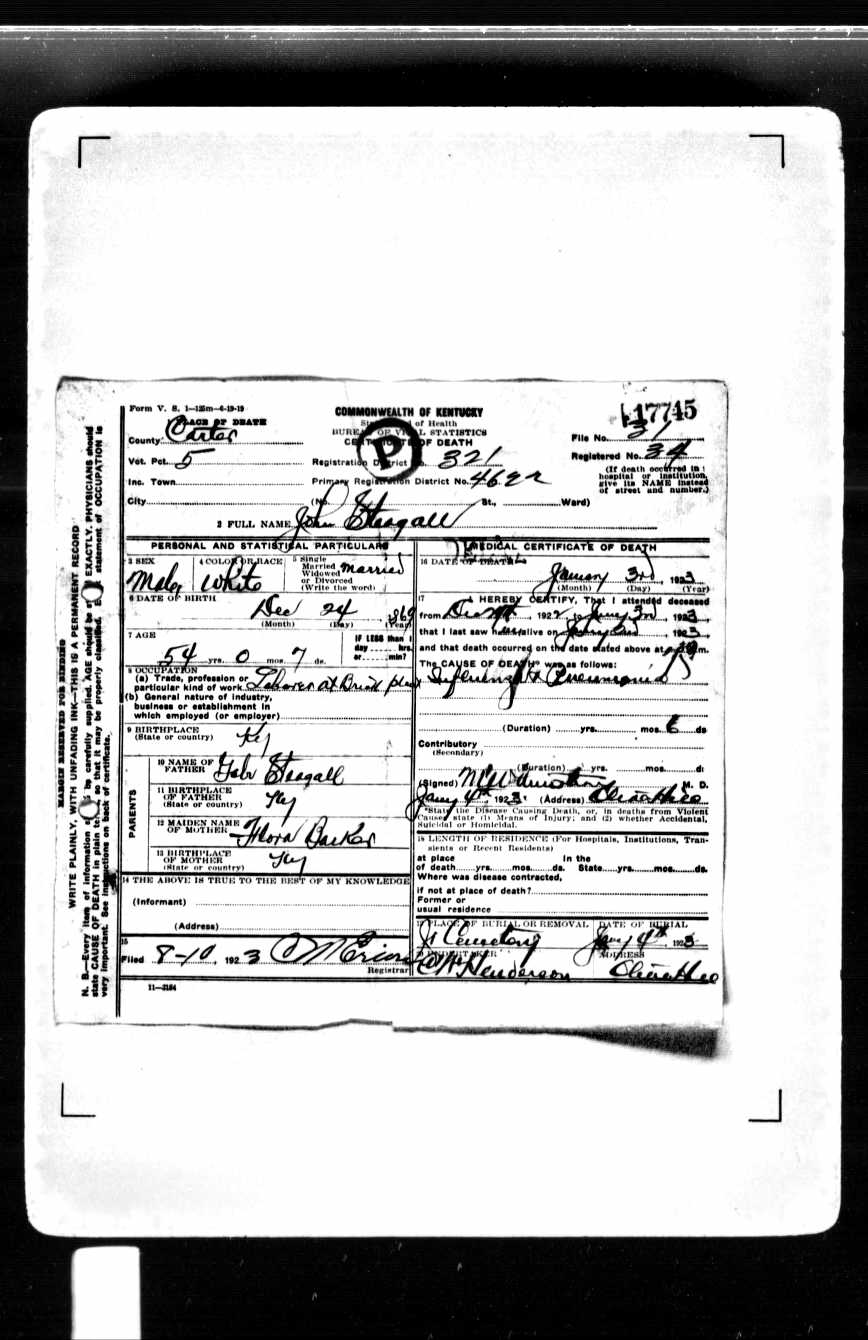 Form V. S. 1—125m—6-19-19
COMMONWEALTH OF KENTUCKY
17745
PLACE OF DEATH
of Health
County Carter
BUREAU OF VITAL STATISTICS
CERTIFICATE OF DEATH
P
File No. 31
Vot. Pct. 5
Registration District No. 321
Registered No. 34
Inc. Town
Primary Registration District No.
(If death occurred in a
hospital or institution,
give its NAME instead
of street and number.)
City
(No.
St.,
Ward)
2 FULL NAME John Steagall
PERSONAL AND STATISTICAL PARTICULARS
3 SEX
Male
4 COLOR OR RACE
White
5 Single
Married
Widowed
or Divorced
(Write the word)
married
6 DATE OF BIRTH
Dec 24, 1869
(Month) (Day) (Year)
7 AGE
54 yrs. 0 mos. 7 ds.
IF LESS than 1
day hrs.
or min?
8 OCCUPATION
(a) Trade, profession or
particular kind of work Laborer at Brick plant
(b) General nature of industry,
business or establishment in
which employed (or employer)
9 BIRTHPLACE
(State or country) Ky
PARENTS
10 NAME OF
FATHER Steagall
11 BIRTHPLACE
OF FATHER
(State or country) Ky
12 MAIDEN NAME
OF MOTHER Flora Barker
13 BIRTHPLACE
OF MOTHER
(State or country) Ky
14 THE ABOVE IS TRUE TO THE BEST OF MY KNOWLEDGE
(Informant)
(Address)
15
Filed 8-10, 1923
Registrar
11—3184
MEDICAL CERTIFICATE OF DEATH
16 DATE OF DEATH
January 3rd, 1923
(Month) (Day) (Year)
17 I HEREBY CERTIFY, That I attended deceased
from 1922, to 1923
that I last saw alive on 1923
and that death occurred on the date stated above at m.
The CAUSE OF DEATH* was as follows:
Influenza & Pneumonia
(Duration) yrs. mos. 6 ds
Contributory
(Secondary)
(Duration) yrs. mos. ds
(Signed) M. D.
Jany 4th, 1923 (Address) Olive Hill
*State the Disease Causing Death, or, in deaths from Violent
Causes state (1) Means of Injury; and (2) whether Accidental,
Suicidal or Homicidal.
18 LENGTH OF RESIDENCE (For Hospitals, Institutions, Tran-
sients or Recent Residents)
at place In the
of death yrs. mos. ds. State yrs. mos. ds.
Where was disease contracted,
if not at place of death?
Former or
usual residence
19 PLACE OF BURIAL OR REMOVAL
Cemetery
DATE OF BURIAL
Jany 4th 1923
UNDERTAKER
Henderson
ADDRESS
Olive Hill
MARGIN RESERVED FOR BINDING
WRITE PLAINLY, WITH UNFADING INK—THIS IS A PERMANENT RECORD
N. B.—Every item of information should be carefully supplied. AGE should be stated EXACTLY. PHYSICIANS should
state CAUSE OF DEATH in plain terms, so that it may be properly classified. Exact statement of OCCUPATION is
very important. See instructions on back of certificate.